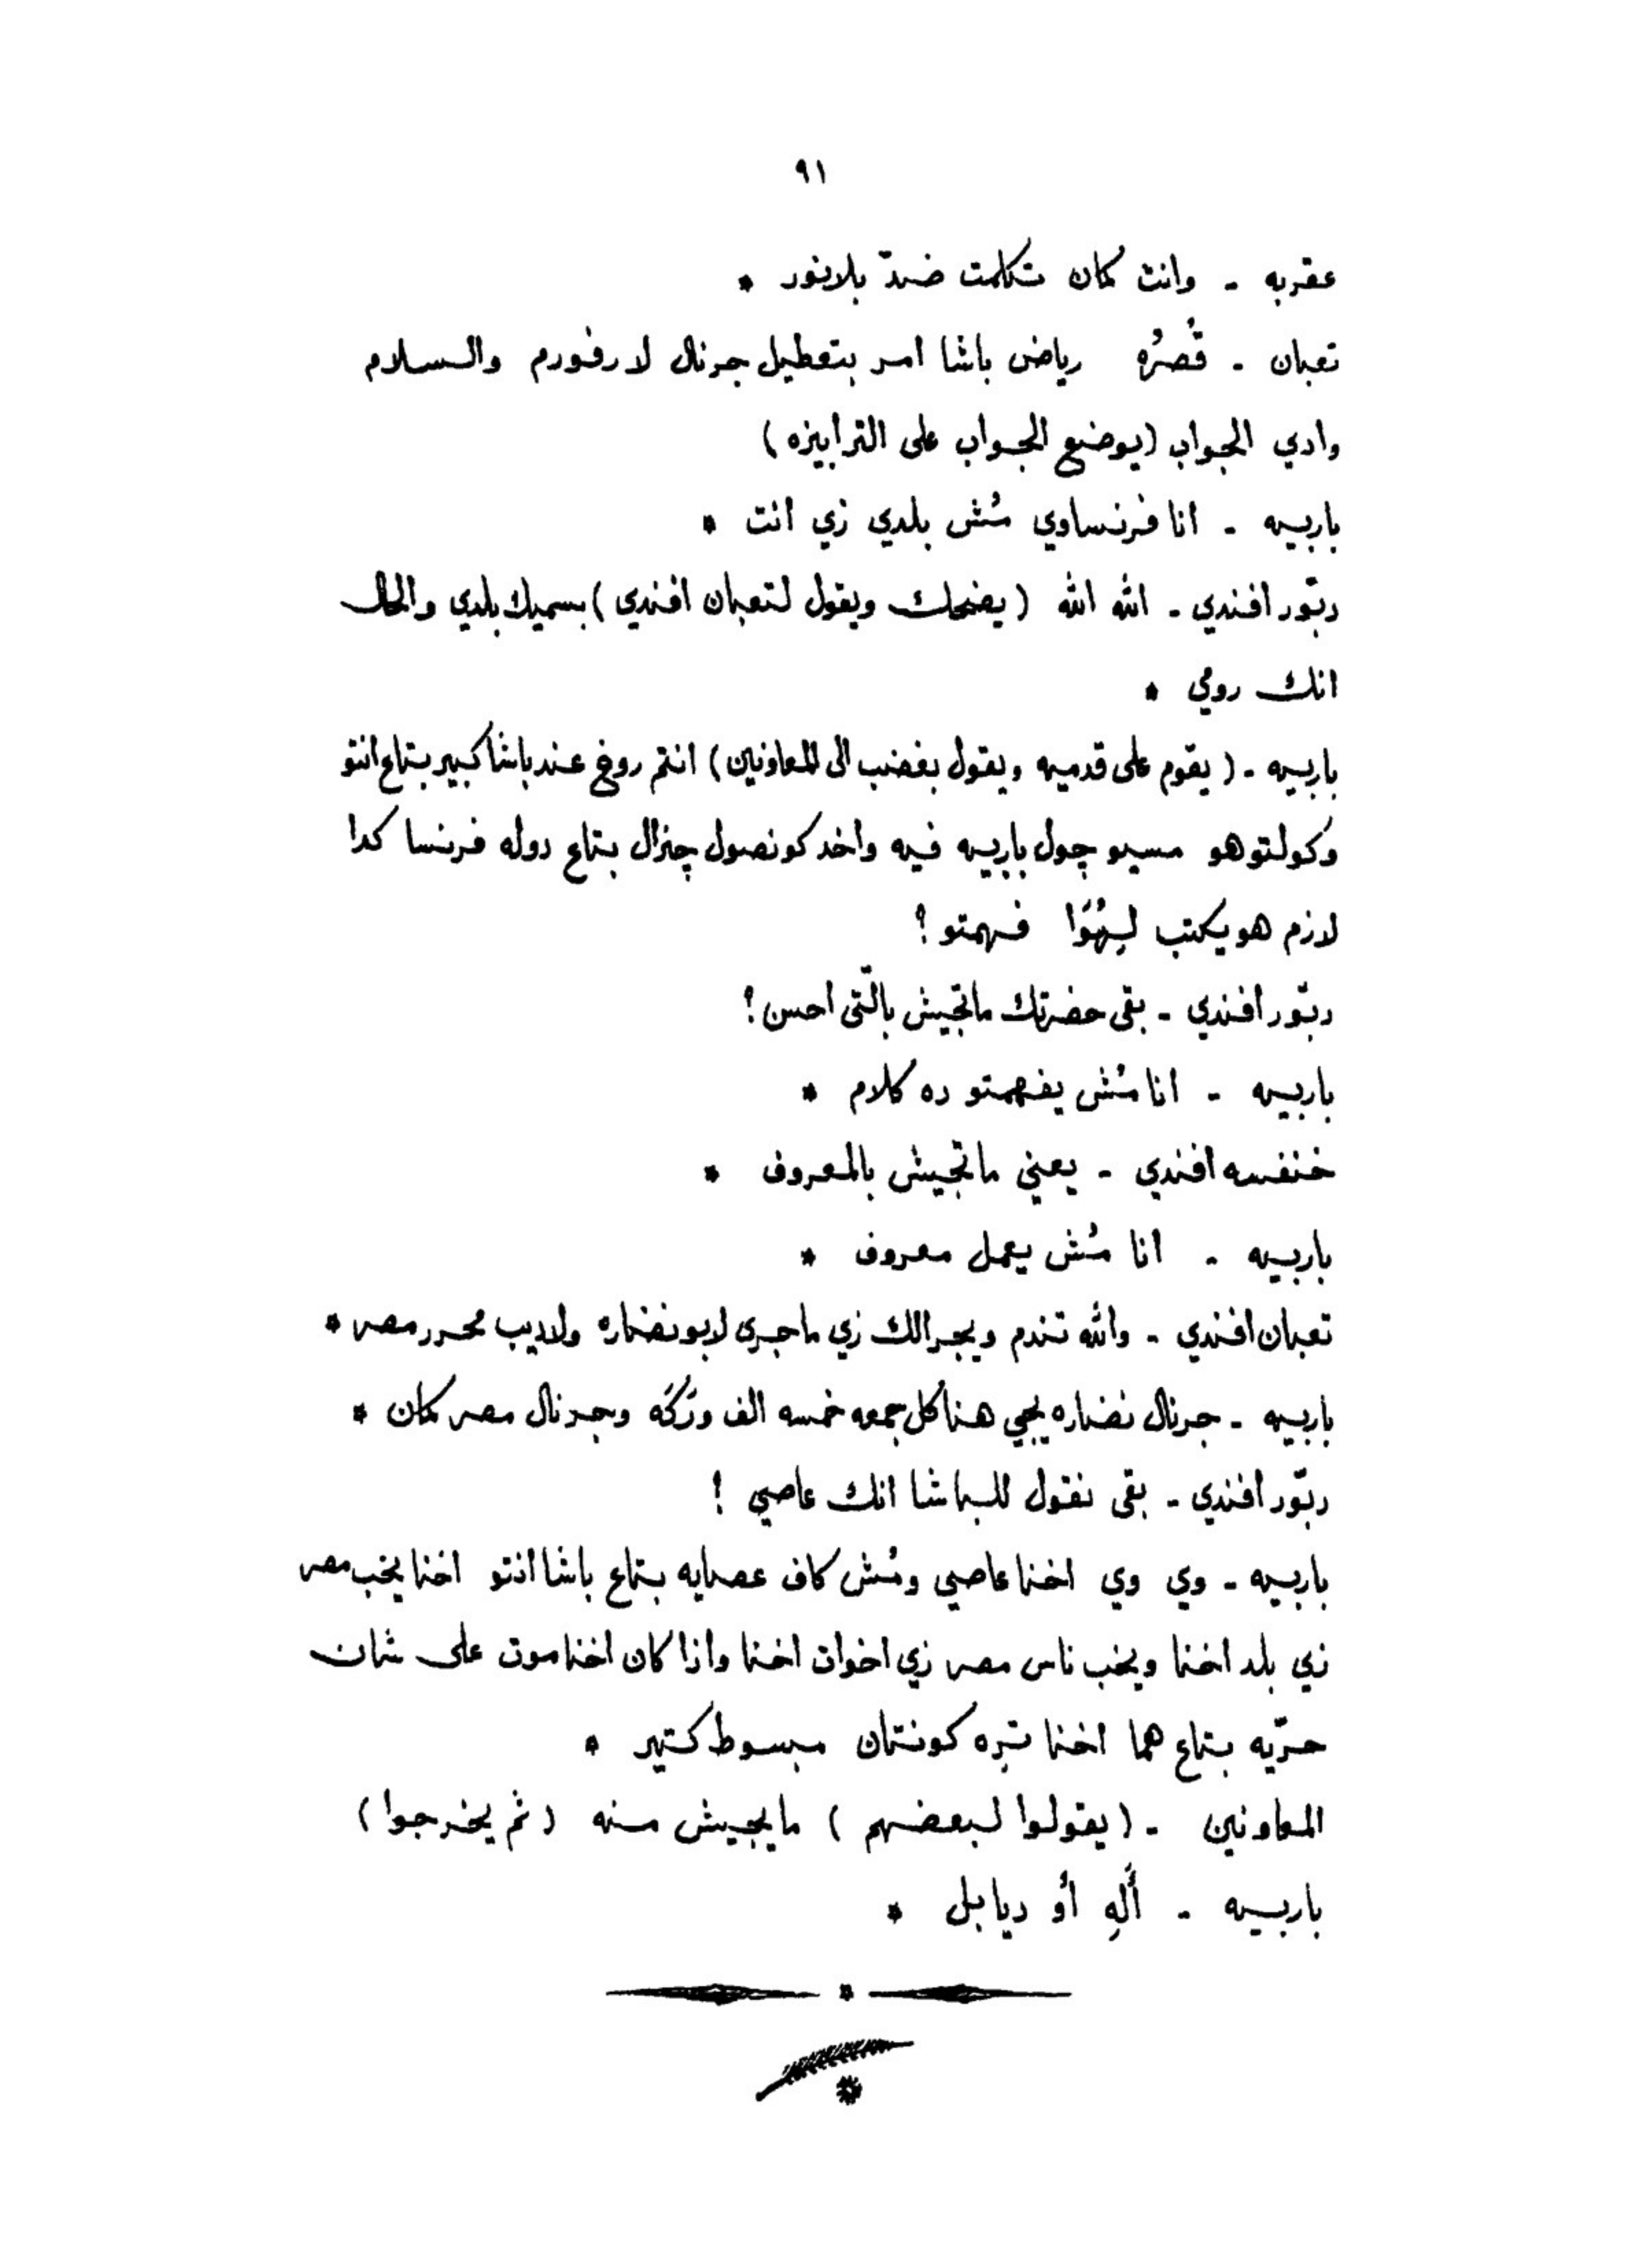 ٩١
عقربه - وانت كمان تتكلمت ضدّ بلانور *
تعبان - قُصْرُه رياض باشا امر بتعطيل جرنال لا رفورم والسلام
وادي الجواب (يوضع الجواب على الترابيزه)
باربييه - انا فرنساوي مُش بلدي زي انت *
دبّور افندي - الله الله (يضحك ويقول لتعبان افندي) بسميك بلدي والحال
انك رومي *
باربييه - (يقوم على قدميه ويقول بغضب الى المعاونين) انتم روخ عند باشا كبير بتاع انتو
وكولتو هو مسيو چول باربييه فيه واخد كونصول چنرال بتاع دوله فرنسا كدا
لازم هو يكتب لِهُوَا فهمتو ؟
دبّور افندي - بقى حضرتك ماتجيش بالّتى احسن ؟
باربييه - انا مُش يفهمتو ده كلام *
خنفسه افندي - يعني ماتجيش بالمعروف *
باربييه - انا مُش يعمل معروف *
تعبان افندي - والله تندم ويجرالك زي ماجرى لابو نضاره ولاديب محرر مصر *
باربييه - جرنال نضاره يجي هنا كل جمعه خمسه الف ورَكَه وجرنال مصر كمان *
دبّور افندي - بقى نقول للباشا انك عاصي !
باربييه - وي وي اخنا عاصي ومُش كاف عصايه بتاع باشا انتو اخنا يخب مصر
زي بلد اخنا ويخب ناس مصر زي اخوات اخنا واذا كان اخنا موت على شان
حرّيه بتاع هما اخنا تره كونتان مبسوط كتير *
المعاونين - (يقولوا لبعضهم) مايجيش منه (ثم يخرجوا)
باربييه - أَلِه أو ديابل *